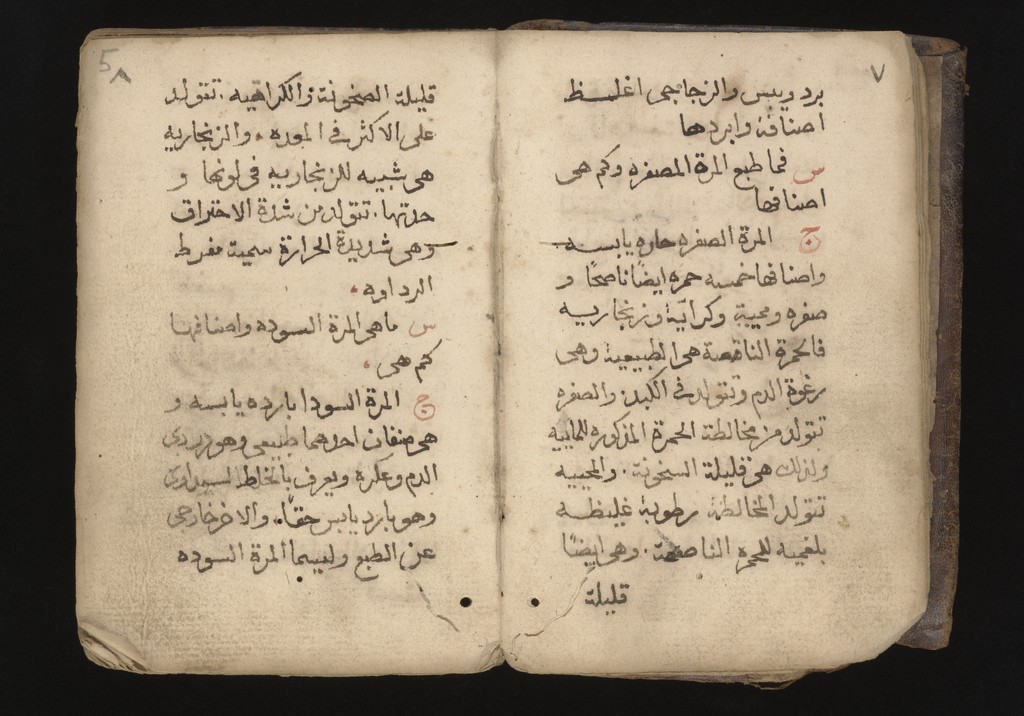 ٧
برد ويبس والزجاجي اغلـــظ
اصنافه وابردها
س فما طبع المرة المصفره وكم هى
اصنافها
ج المرة الصفره حاره يابسه
واصنافها خمسه حمره ايضًا ناصحًا و
صفره ومحيية وكراتيّة وزنجاريه
فالحمرة الناقصة هى الطبيعية وهى
رغوة الدم وتتولد فى الكبد والصفره
تتولد من مخالطة الحمرة المذكوره للماييه
ولذلك هى قليلة السخونة والمحييه
تتولد المخالطة رطوبة غليظه
بلغميه للحمره الناصحة وهى ايضًا
قليلة
5
٨
قليلة الصخونة والكراهيه تتولد
على الاكثر فى المعده والزنجاريه
هى شبيه للزنجاريه فى لونها و
حدتها تتولد من شدة الاحتراق
وهى شديدة الحرارة سميت مفرط
الرداوه
س ماهى المرة السوده واصنافها
كم هى
ج المرة السودا بارده يابسه و
هى صنفان احدهما طبيعى وهو دردى
الدم وعكره ويعرف بالخلط السوداوى
وهو بارد يابس حقًا والاخر خارجى
عن الطبع وليسما المرة السوده